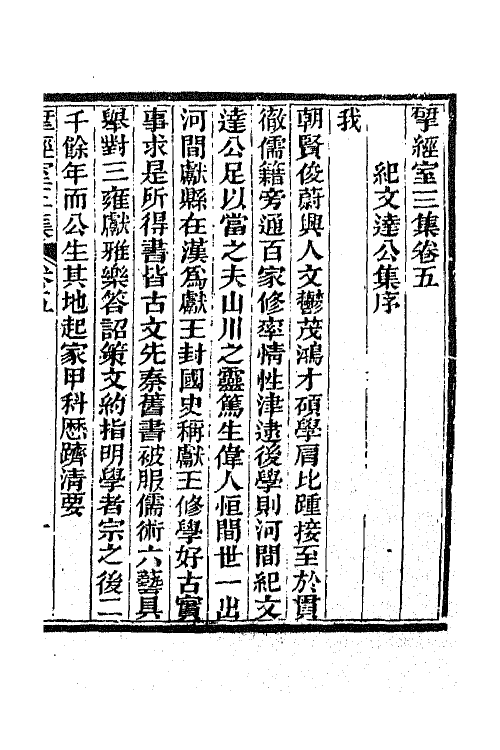 揅經室三集卷五
紀文達公集序
我
朝賢俊蔚興人文鬱茂鴻才碩學肩比踵接至於貫
徹儒籍旁通百家修率情性津逮後學則河間紀文
達公足以當之夫山川之靈篤生偉人恒間世一出
河間獻縣在漢為獻王封國史稱獻王修學好古實
事求是所得書皆古文先秦舊書被服儒術六藝具
舉對三雍獻雅樂答詔策文約指明學者宗之後二
千餘年而公生其地起家甲科歷躋清要
揅經室三集 卷五 一